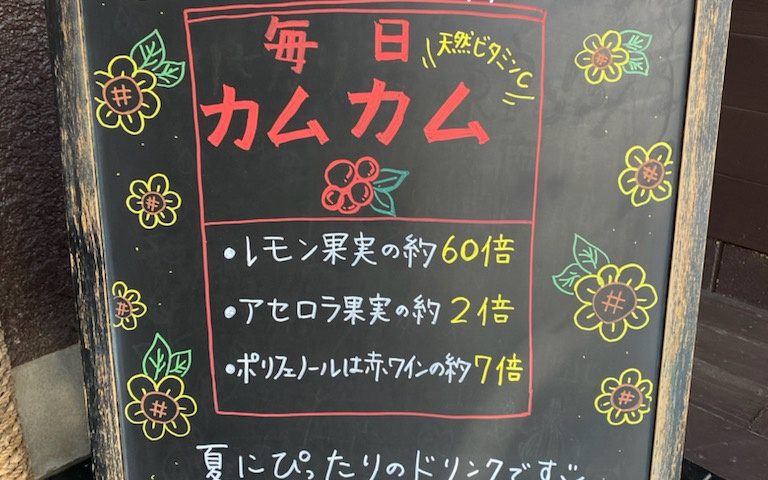 毎日
天然ビタミンC
カムカム
・レモン果実の約60倍
・アセロラ果実の約2倍
・ポリフェノールは赤ワインの約7倍
夏にぴったりのドリンクです